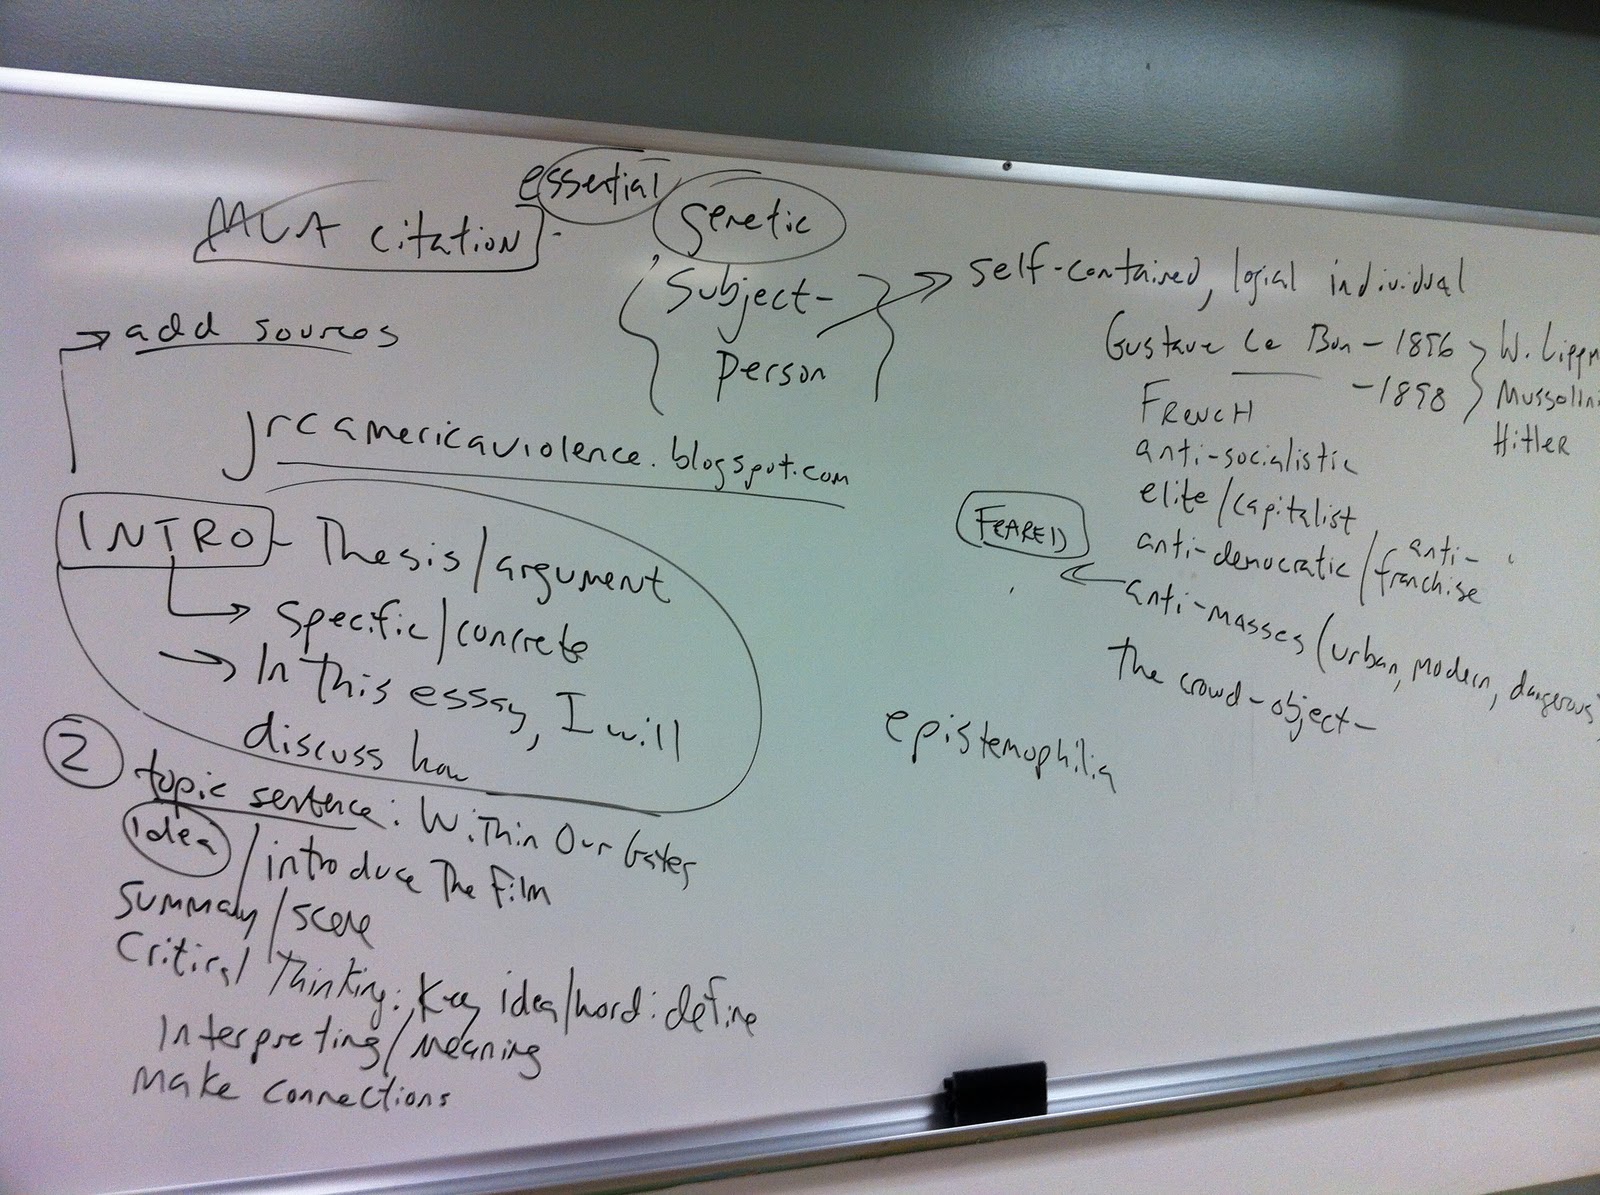 essential
MLA citation
genetic
add sources
Subject-
Person
jrcamericaviolence.blogspot.com
INTRO - Thesis/argument
specific/concrete
In this essay, I will
discuss how
2
topic sentence: Within Our Gates
idea/introduce the film
summary/scene
Critical Thinking: Key idea/word: define
Interpreting/meaning
make connections
self-contained, logial individual
Gustave Le Bon - 1896
-1898
W. Lippm
Mussolini
Hitler
French
anti-socialistic
elite/capitalist
anti-democratic/anti-franchise
FEARED
anti-masses (urban, modern, dangerous)
the crowd-object-
epistemophilia